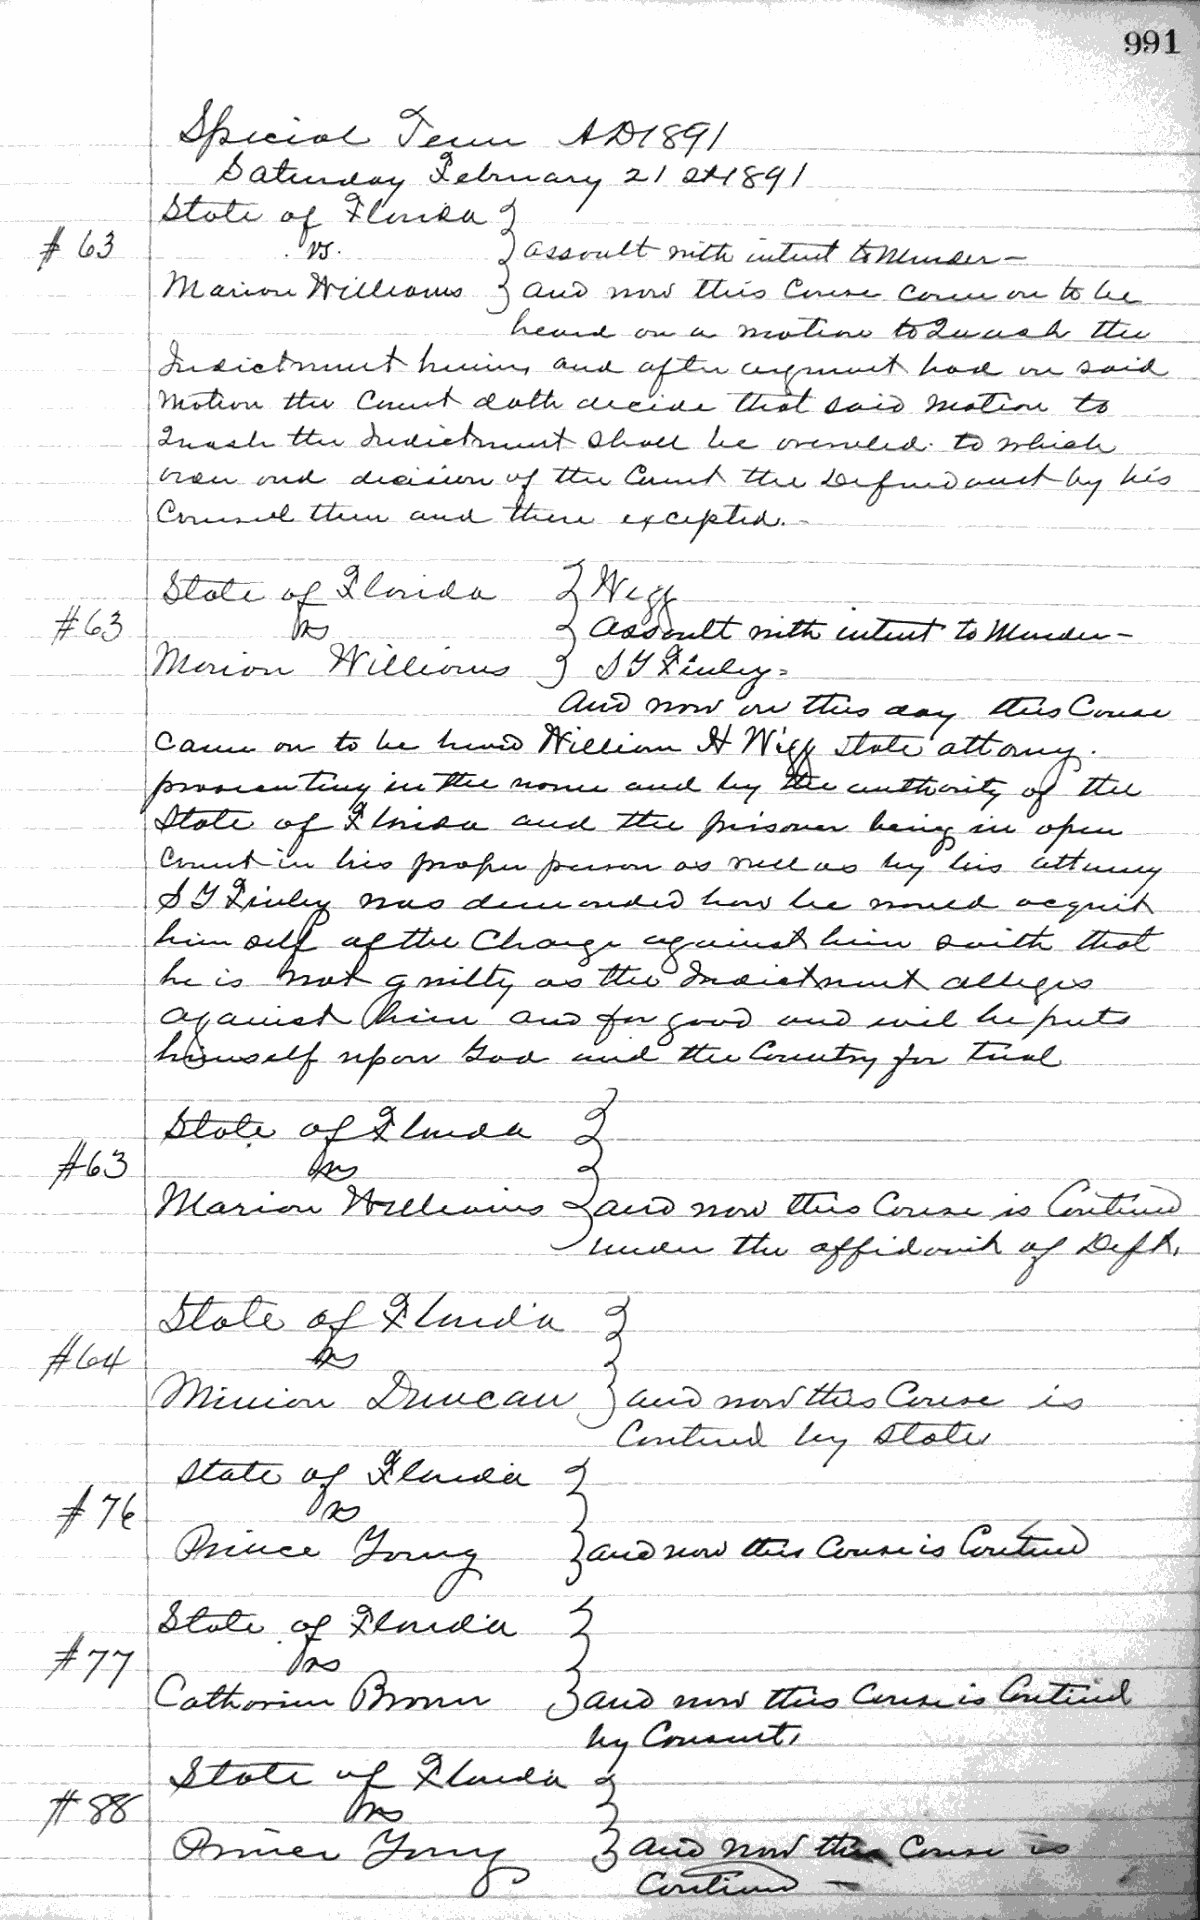 991
Special Term AD1891
Saturday February 21st 1891
State of Florida
# 63 vs. assault with intent to Murder-
Marion Williams and now this Cause come on to be
heard on a motion to Quash the
Indictment herein, and after argument had on said
Motion the Court doth decide that said Motion to
Quash the Indictment Shall be overruled. to which
order and decision of the Court the Defendant by his
Counsel then and there excepted.-
State of Florida Wigg
#63 vs assault with intent to Murder-
Marion Williams S Y Finley=
And now on this day this Cause
Came on to be heard William H Wigg State attorny.
prosecuting in the name and by the authority of the
State of Florida and the prisoner being in open
Court in his proper person as well as by his attorney
S Y Finley was demanded how he would acquit
him self of the Charge against him saith that
he is not guilty as the Indictment alleges
against him and for good and evil he puts
himself upon God and the Country for trial
State of Florida
#63 vs
Marion Williams and now this Cause is Contined
under the affidavit of Deft,
State of Florida
#64 vs
Minion Duncan and now this Cause is
Contined by State
State of Florida
# 76 vs
Prince Young and now this Cause is Contined
State of Florida
#77 vs
Catherine Brown and now this Cause is Contined
by Consent,
State of Florida
#88 vs
Prince Young and now this Cause is
Contined -